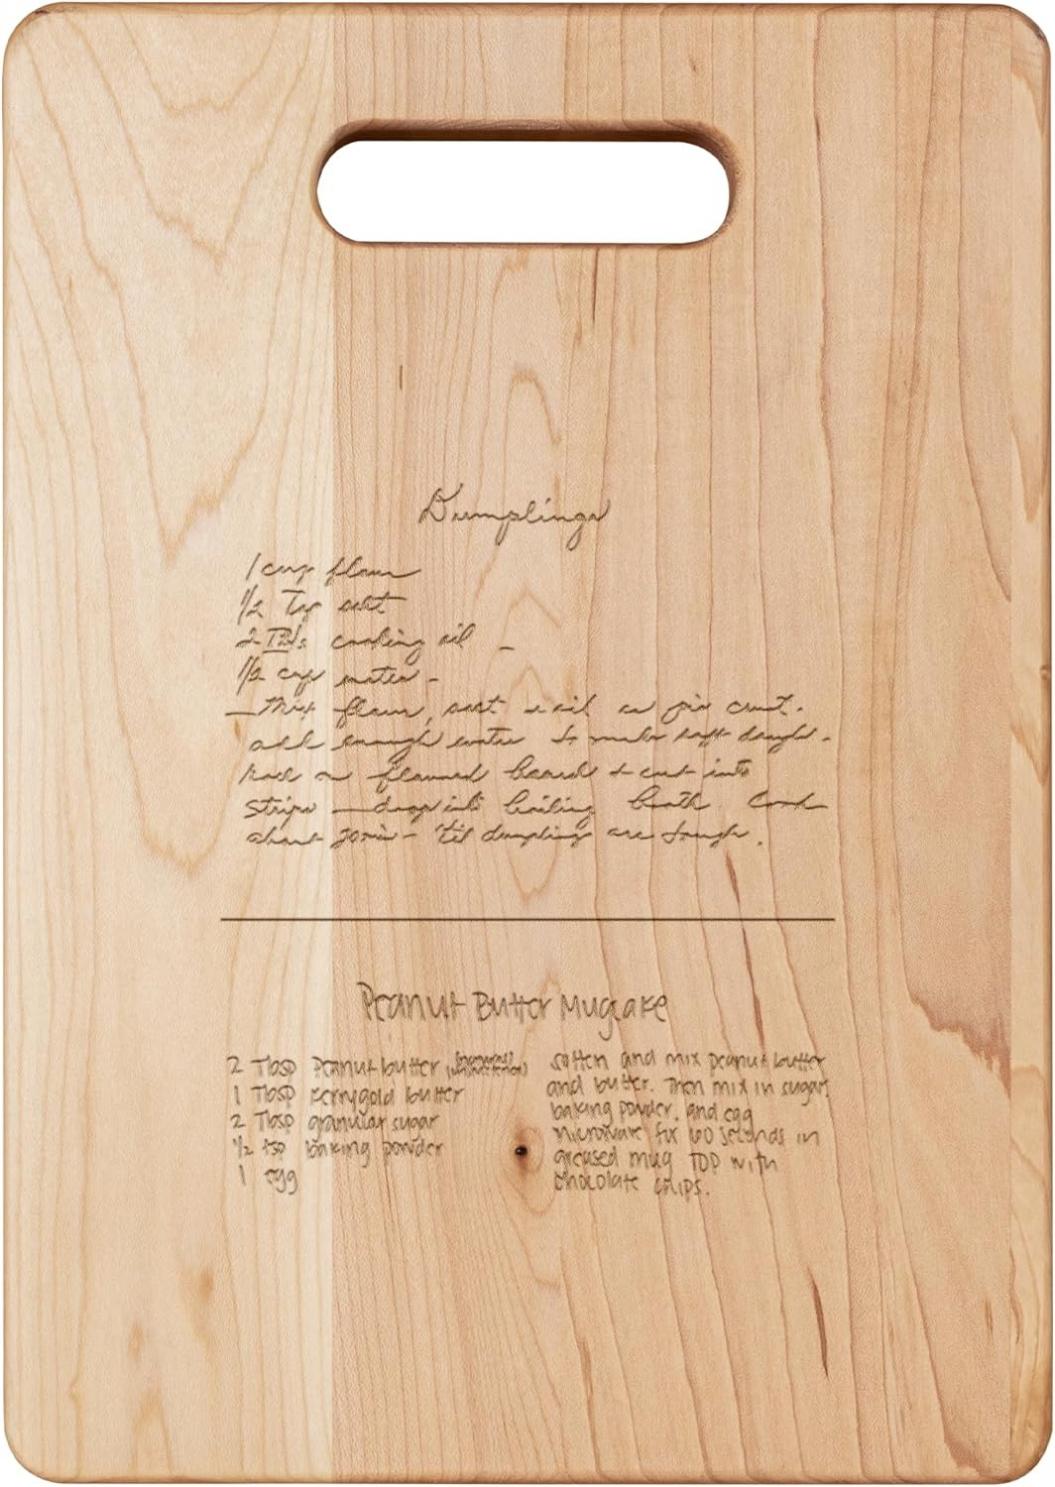 Dumplings
1 cup flour
1/2 Tsp salt
2 Tbls. cooking oil -
1/2 cup water -
Mix flour, salt & oil as pie crust.
add enough water to make soft dough.
Roll on floured board & cut into
strips — drop into boiling broth Cook
about 20 min - 'til dumplings are tough.
Peanut Butter Mugcake
2 Tbsp Peanut butter
1 Tbsp Kerrygold butter
2 Tbsp granular sugar
1/2 tsp baking powder
1 egg
soften and mix peanut butter
and butter. Then mix in sugar,
baking powder, and egg
microwave for 60 seconds in
greased mug TOP with
chocolate chips.